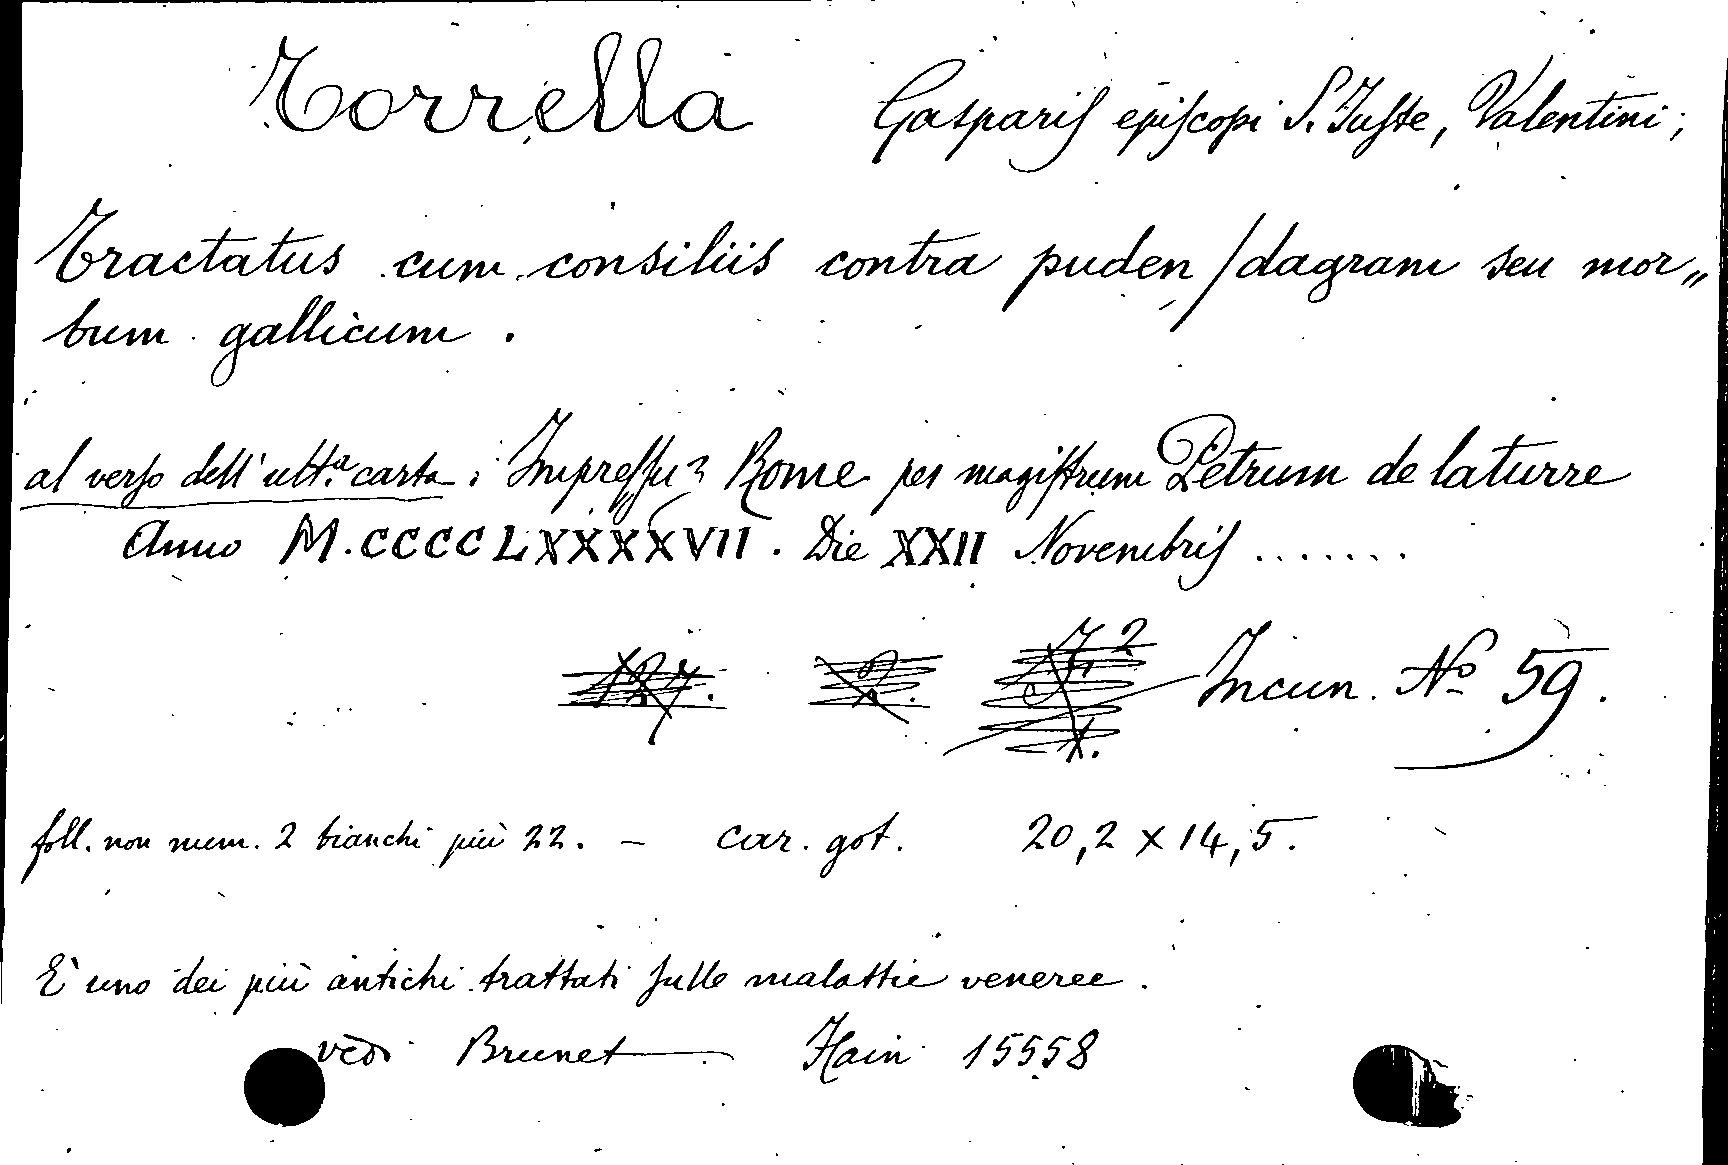 Torrella Gasparis episcopi S. Juste, Valentini;
Tractatus cum consiliis contra puden/dagram seu mor„
bum gallicum.
al verso dell'ultª carta: Impressuz Rome per magistrum Petrum de laturre
Anno M.CCCCLXXXXVII. Die XXII Novembris .......
Incun. Nº 59.
foll. non num. 2 bianchi più 22. – car. got. 20,2 x 14,5.
È uno dei più antichi trattati sulle malattie veneree.
vedi Brunet — Hain 15558